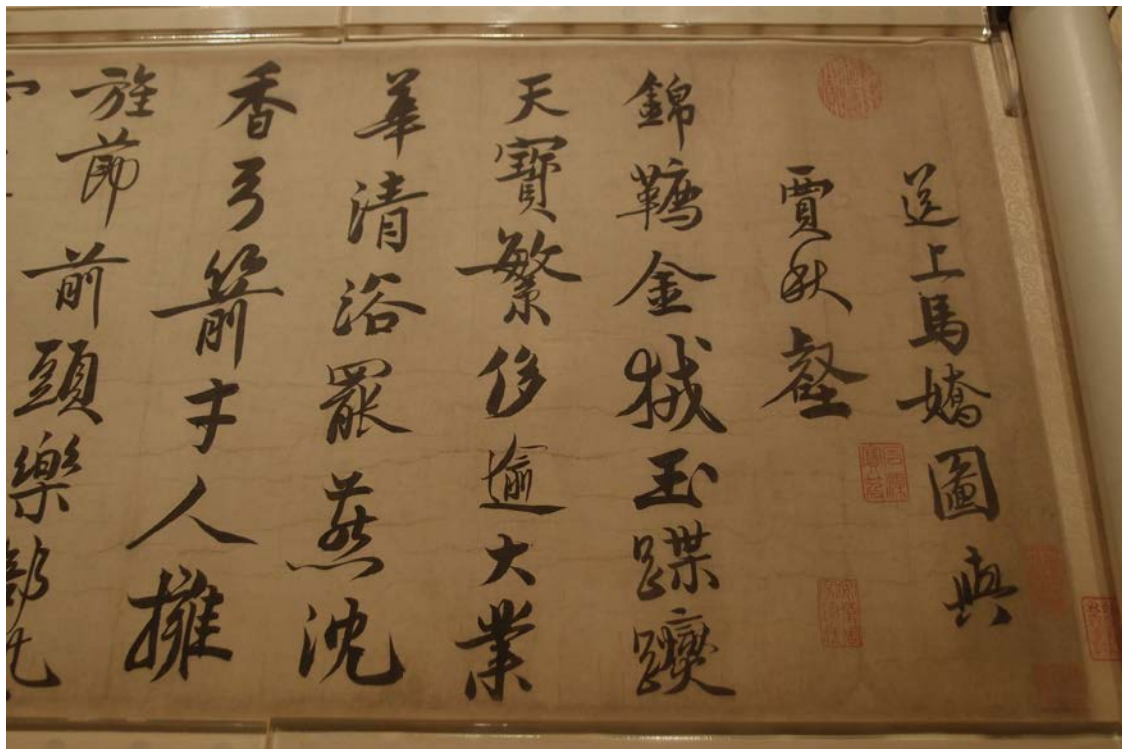 送上馬嬌圖與
賈秋壑
錦韉金㧞玉蹀躞
天寶繁侈逾大業
華清浴罷燕沈
香弓箭才人擁
旌節前頭樂部